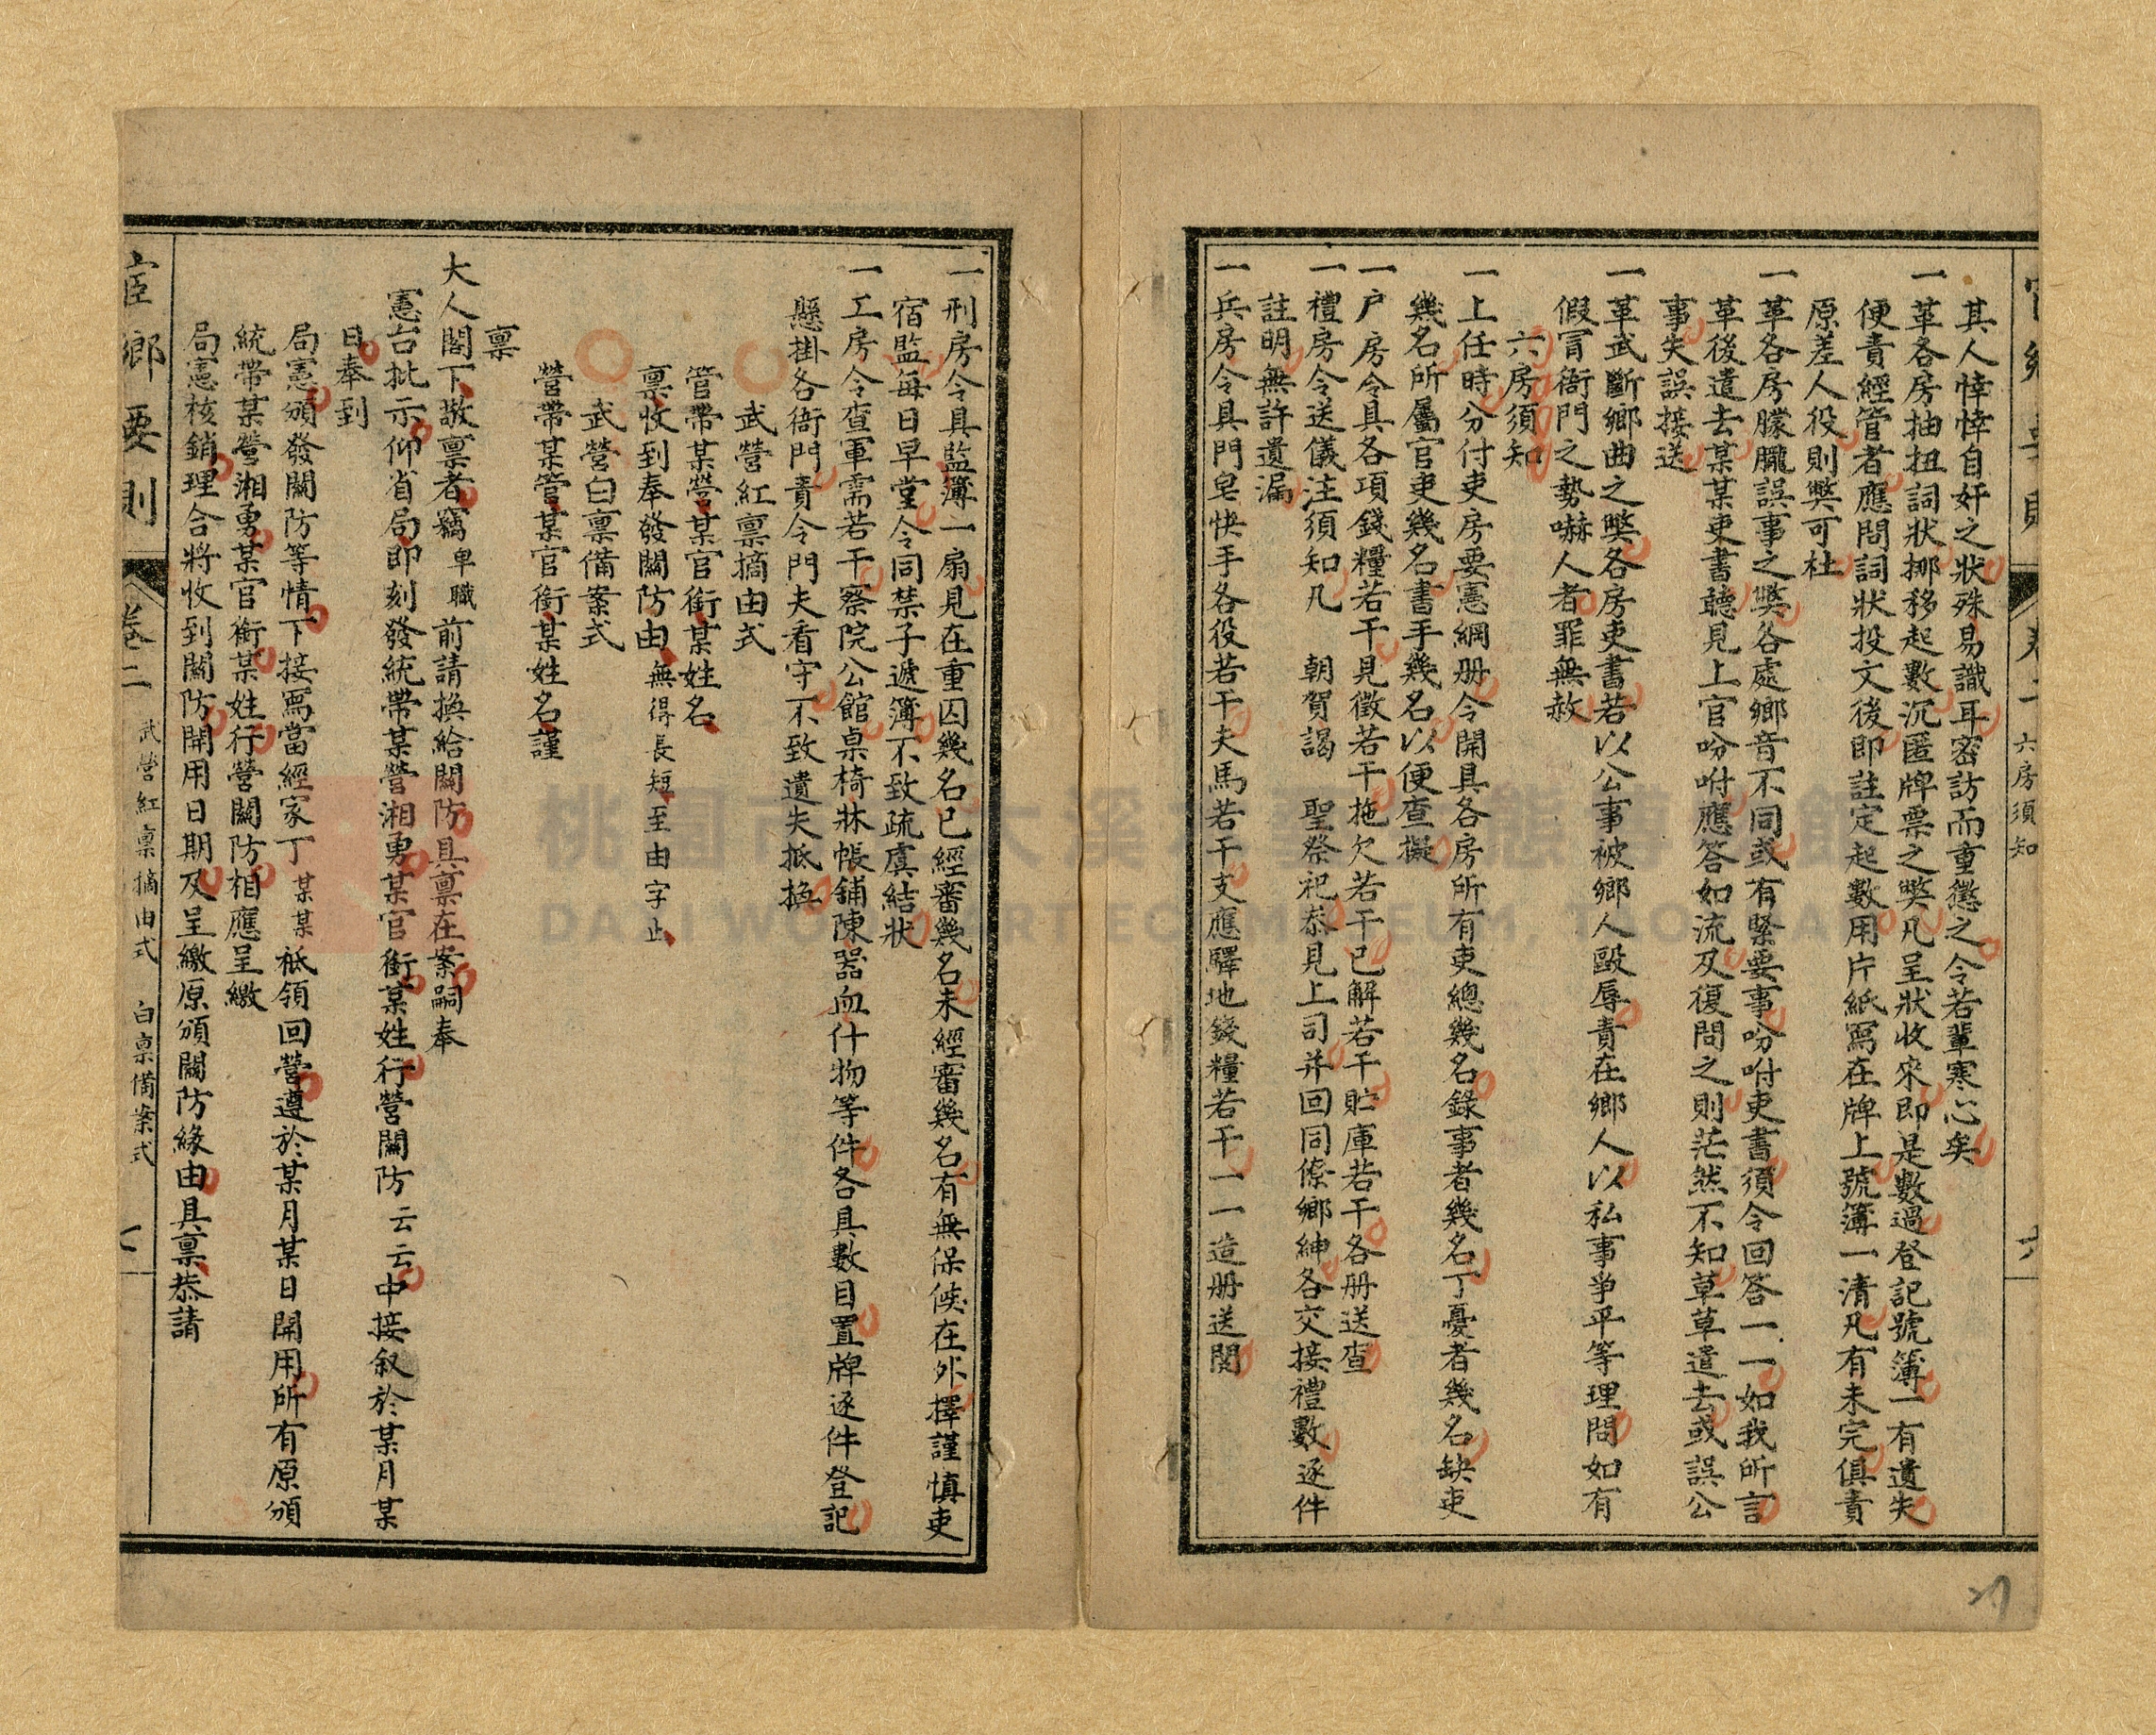 其人悻悻自奸之狀殊易識耳密訪而重懲之令若輩寒心矣
一革各房抽扭詞狀挪移起數沉匿牌票之獘凡呈狀收來即是數過登記號簿一有遺失
便責經管者應問詞狀投文後即註定起數用片紙寫在牌上號簿一清凡有未完俱責
原差人役則獘可杜
一革各房朦朧誤事之獘各處鄉音不同或有緊要事吩咐吏書須令回答一一如我所言
革後遣去某某吏書聽見上官吩咐應答如流及復問之則茫然不知草草遣去或誤公
事失誤接送
一革武斷鄉曲之獘各房吏書若以公事被鄉人毆辱責在鄉人以私事爭平等理問如有
假冐衙門之勢嚇人者罪無赦
六房須知
一上任時分付吏房要憲綱册令開具各房所有吏總幾名錄事者幾名丁憂者幾名缺吏
幾名所屬官吏幾名書手幾名以便查擬
一户房令具各項錢糧若干見徵若干拖欠若干已解若干貯庫若干各册送查
一禮房令送儀注須知凡 朝賀謁 聖祭祀恭見上司并回同僚鄉紳各交接禮數逐件
註明無許遺漏
一兵房令具門皂快手各役若干夫馬若干支應驛地錢糧若干一一造册送閱
六房須知
一刑房令具監簿一扇見在重囚幾名已經審幾名未經審幾名有無保候在外擇謹慎吏
宿監每日早堂令同禁子遞簿不致疏虞結狀
一工房令查軍需若干察院公館桌椅牀帳鋪陳器血什物等件各具數目置牌逐件登記
懸掛各衙門責令門夫看守不致遺失抵換
武營紅禀摘由式
管帶某營某官銜某姓名
禀收到奉發關防由無得長短至由字止
武營白禀備案式
營帶某管某官銜某姓名謹
禀
大人閣下敬禀者竊卑職前請換給關防具禀在案嗣奉
憲台批示仰省局即刻發統帶某營湘勇某官銜某姓行營關防云云中接叙於某月某
日奉到
局憲頒發關防等情下接寫當經家丁某某祗領回營遵於某月某日開用所有原頒
統帶某營湘勇某官銜某姓行營關防相應呈繳
局憲核銷理合將收到關防開用日期及呈繳原頒關防緣由具禀恭請
宦鄉要則 卷二 武營紅禀摘由式 白禀備案式